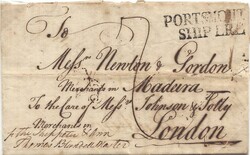 PORTSMOUTH
SHIP LRE
To
Messrs Newton & Gordon
Merchants in
Madeira
To the Care of Messrs Johnson & Jolly
Merchants in
London